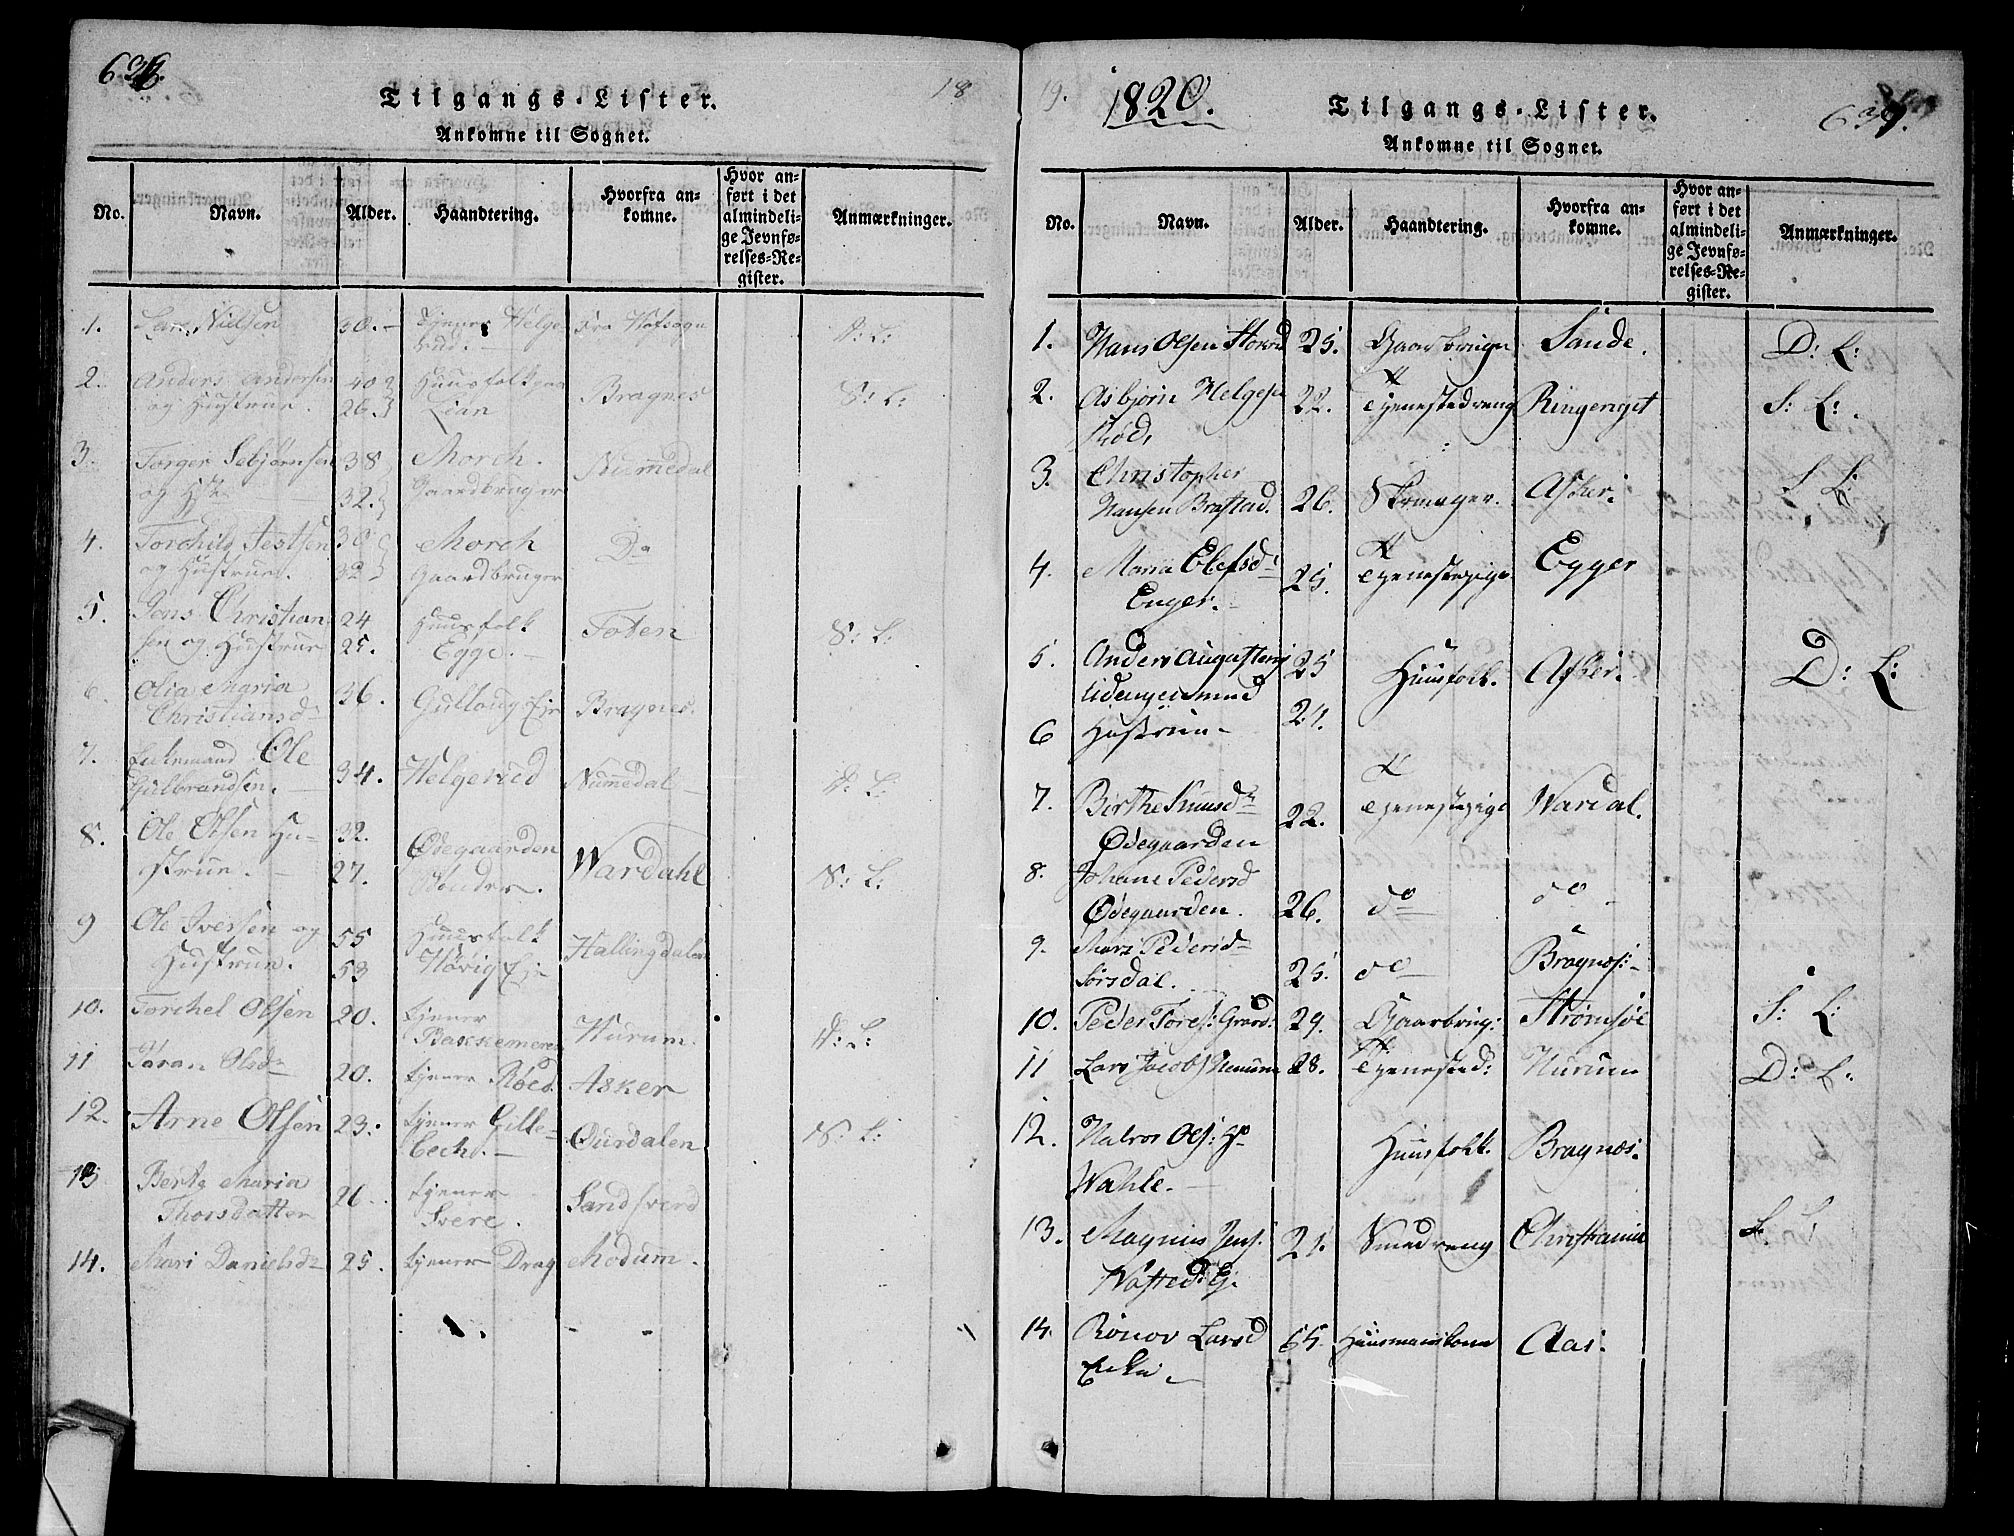 636.
Tilgangs-Lister.
18
Ankomne til Sognet.
No. Navn. Alder. Haandtering. Hvorfra ankomne. Hvor anført i det almindelige Jevnførelses-Register. Anmærkninger.
1. Lars Nielsen 30. Tjener Helgerud. Fra Hofsogn D: L:
2. Anders Andersen 40 Huusfolk paa Bragnes S: L:
og Hustrue. 26 Lian
3. Torger Sebjørnsen 38 Morch. Nummedal
og Hst 32. Gaardbruger
4. Torchild Jestsen 30 Morch Do
og Hustrue. 32 Gaardbruger
5. Jens Christian- 24 Huusfolk Toten S: L:
sen og Hustrue 25. Egge.
6. Olia Maria 36. Gullaug Eje Bragnes.
Christiansd
7. Ole 34. Helgerud Nummedal D: L:
Gulbrandsen.
8. Ole Olsen Hu- 32. Ødegaarden Wardahl S: L:
strue. 27. Sønder.
9 Ole Iversen og 55 Huusfolk Hallingdalen
Hustrue. 53 Høvig Eje
10. Torchel Olsen 20. tjener Hurum. D: L:
Bakkemeren
11 Taran Olsd 20. tjener Røed Asker
12. Arne Olsen 23. tjener Gille- Ourdalen S: L:
bech.
13 Berte Maria 26. tjener Sandsverd
Thorsdatter Svere.
14. Mari Danielsd 25. tjener Drag Modum.
19.
1820.
Tilgangs-Lister.
637.
Ankomne til Sognet.
No. Navn. Alder. Haandtering. Hvorfra ankomne. Hvor anført i det almindelige Jevnførelses-Register. Anmærkninger.
1. Hans Olsen 25. Gaardbruger Sande. D: L:
2. Asbjørn Helgesen 22. Tjenestedreng Ringeriget S: L:
Rød,
3. Christopher
Hansen Brastad. 26. Skomager. Asker. S L:
4. Maria Olefsd 25. Tjenestepige Egger
Enger.
5. Anders 25 Huusfolk. Asker. D: L:
med 24.
6 Hustrue
7. Birthe Knusd 22. Tjenestepige Wardal.
Ødegaarden
8. Johane Pedersd
Ødegaarden. 26. do do
9. Mari Pedersd
Sørsdal. 25. do Bragnæs:
10. Peder Tores: 29. Gaardbrug: Strømsøe S: L:
11 Lars Jacobs 28. Tjenested: Hurum D: L:
12. Halvor Ols: Huusfolk. Bragnæs.
Wahle.
13. Magnus Jens. 21. Smedreng Christiania L.
14. Rønov Larsd 65. Huusmandskone Aas.